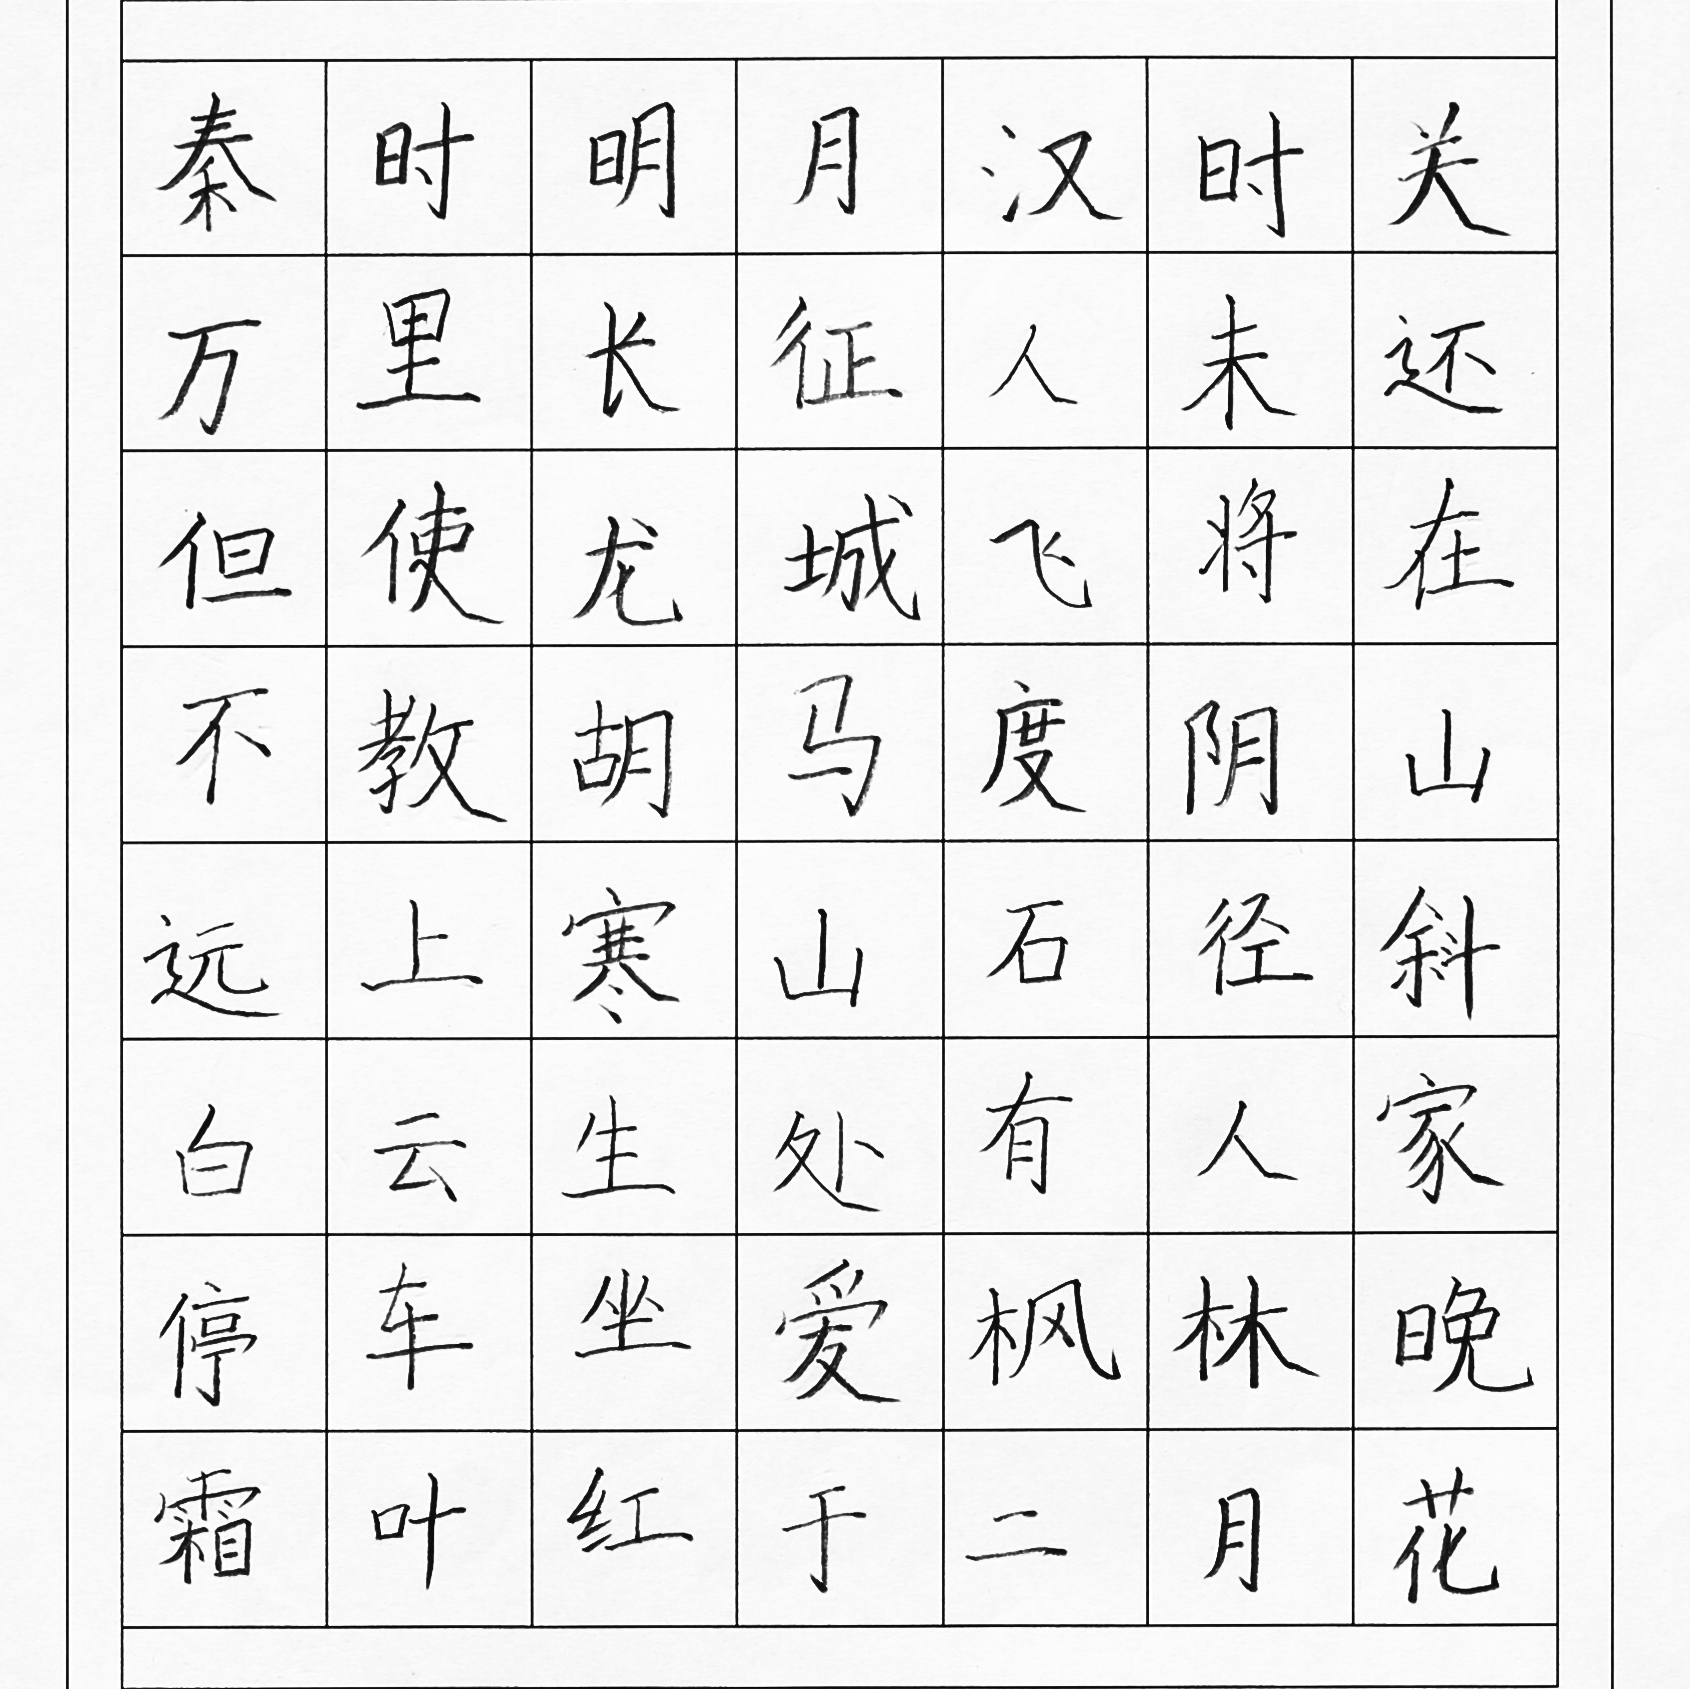 秦时明月汉时关
万里长征人未还
但使龙城飞将在
不教胡马度阴山
远上寒山石径斜
白云生处有人家
停车坐爱枫林晚
霜叶红于二月花